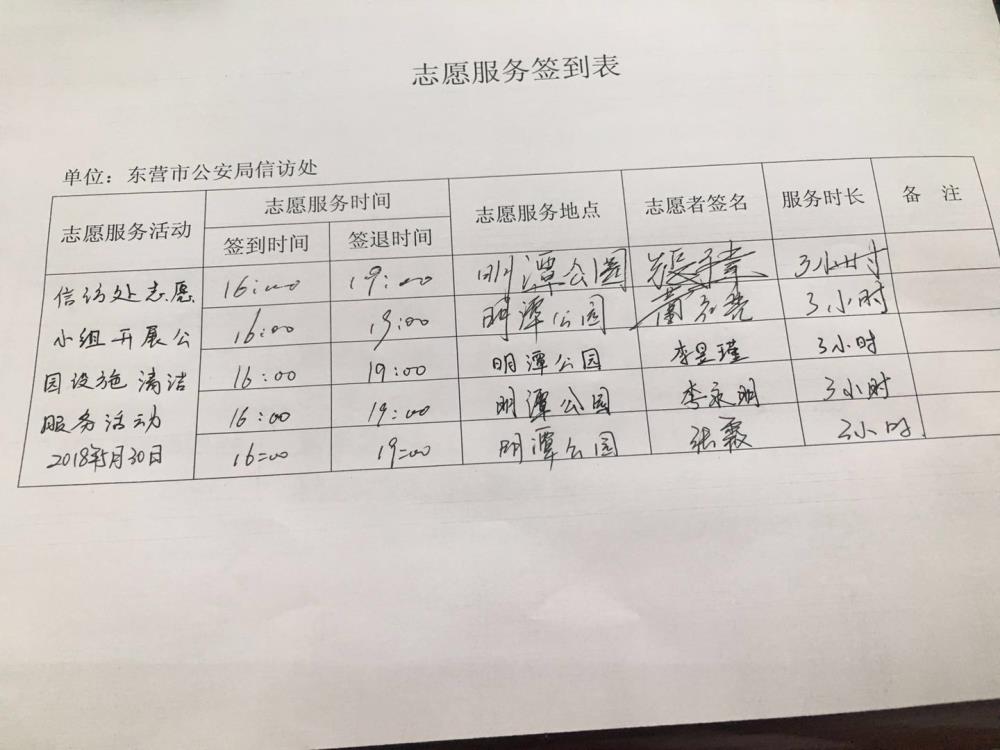 志愿服务签到表
单位：东营市公安局信访处
志愿服务活动 志愿服务时间 志愿服务地点 志愿者签名 服务时长 备 注
签到时间 签退时间
信访处志愿小组开展公园设施清洁服务活动 2018年5月30日
16:00 19:00 明潭公园 3小时
16:00 19:00 明潭公园 3小时
16:00 19:00 明潭公园 李昱瑾 3小时
16:00 19:00 明潭公园 李永明 3小时
16:00 19:00 明潭公园 张霖 3小时